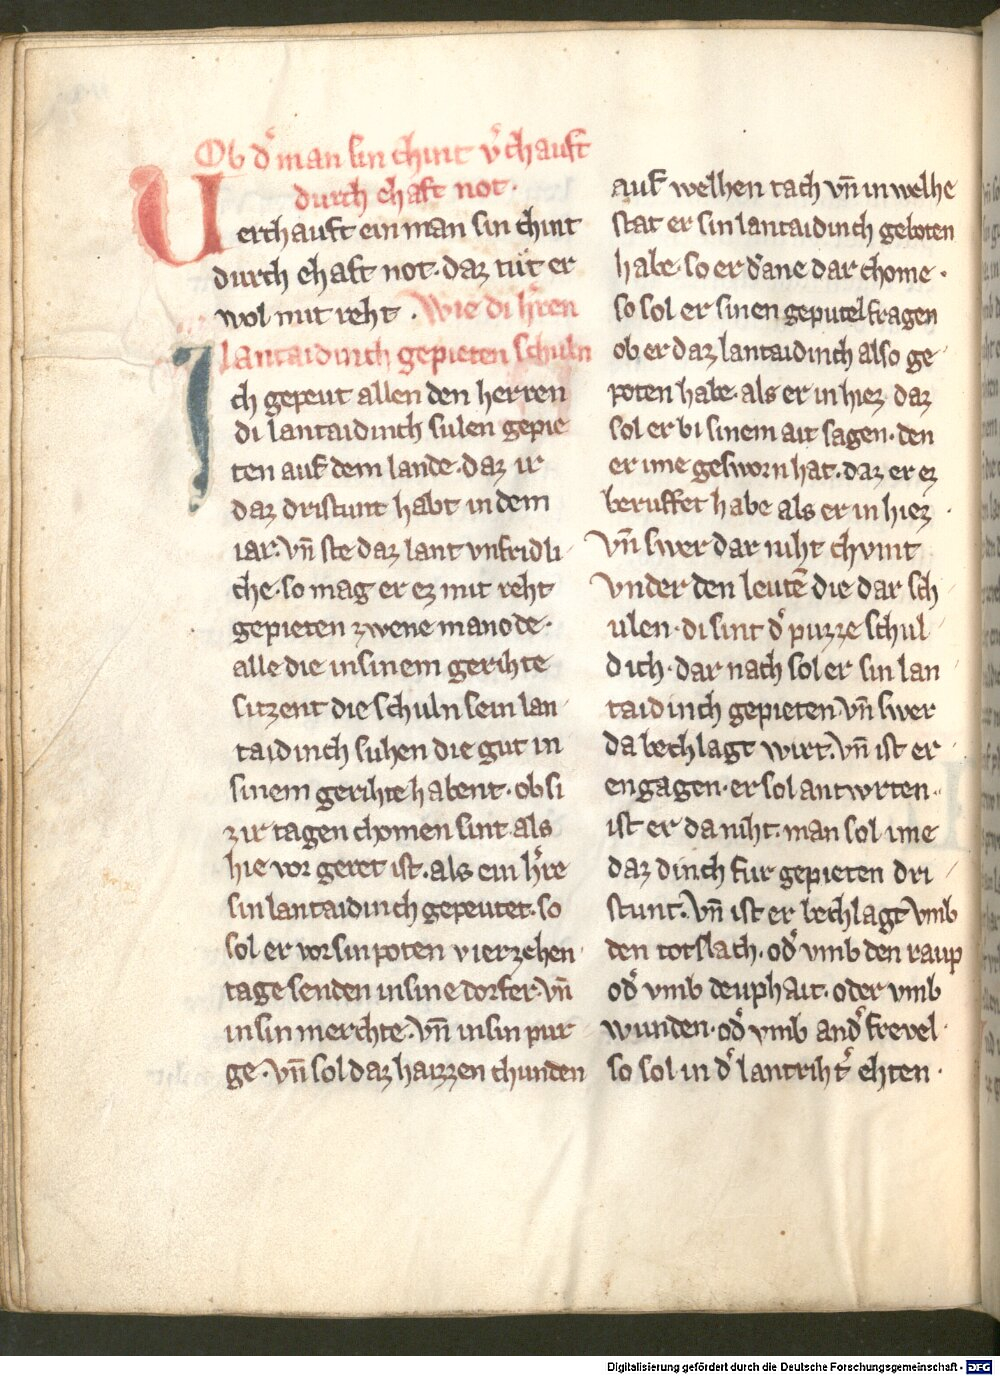 Ob dˀ man sin chint vˀchauft
durch ehaft not.
Uerchauft ein man sin chint
durch ehaft not. daz tut er
wol mit reht . Wie di hˀren
lantaidinch gepieten schuln
Ich gepeut allen den herren
di lantaidinch sulen gepie
ten auf dem lande. daz ir
daz dristunt habt in dem
iar. vn̄ ste daz lant vnfridli
che. so mag er ez mit reht
gepieten zwene manode.
alle die in sinem gerihte
sitzent die schuln sein lan
taidinch suhen die gut in
sinem gerihte habent. ob si
zir tagen chomen sint. als
hie vor geret ist. als ein hˀre
sin lantaidinch gepeutet. so
sol er vor sin poten vierzehen
tage senden in sine dorfer. vn̄
in sin merchte. vn̄ in sin pur
ge. vn̄ sol daz haizzen chunden
auf welhen tach vn̄ in welhe
stat er sin lantaidinch geboten
habe. so er dˀane dar chome .
so sol er sinen geputel fragen
ob er daz lantaidinch also ge
poten habe. als er in hiez daz
sol er bi sinem ait sagen. den
er ime gesworn hat. daz er ez
beruffet habe als er in hiez .
vn̄ swer dar niht chvmt
vnder den leutē die dar sch
ulen. di sint dˀ puzze schul
dich. dar nach sol er sin lan
taidinch gepieten. vn̄ swer
da bechlagt wirt. vn̄ ist er
engagen. er sol antwrten.
ist er da niht. man sol ime
daz dinch fur gepieten dri
stunt. vn̄ ist er bechlagt vmb
den totslach. odˀ vmb den raup
odˀ vmb deuphait. oder vmb
wunden. odˀ vmb andˀ frevel
so sol in dˀ lantrihtˀ ehten .
Digitalisierung gefördert durch die Deutsche Forschungsgemeinschaft - DFG